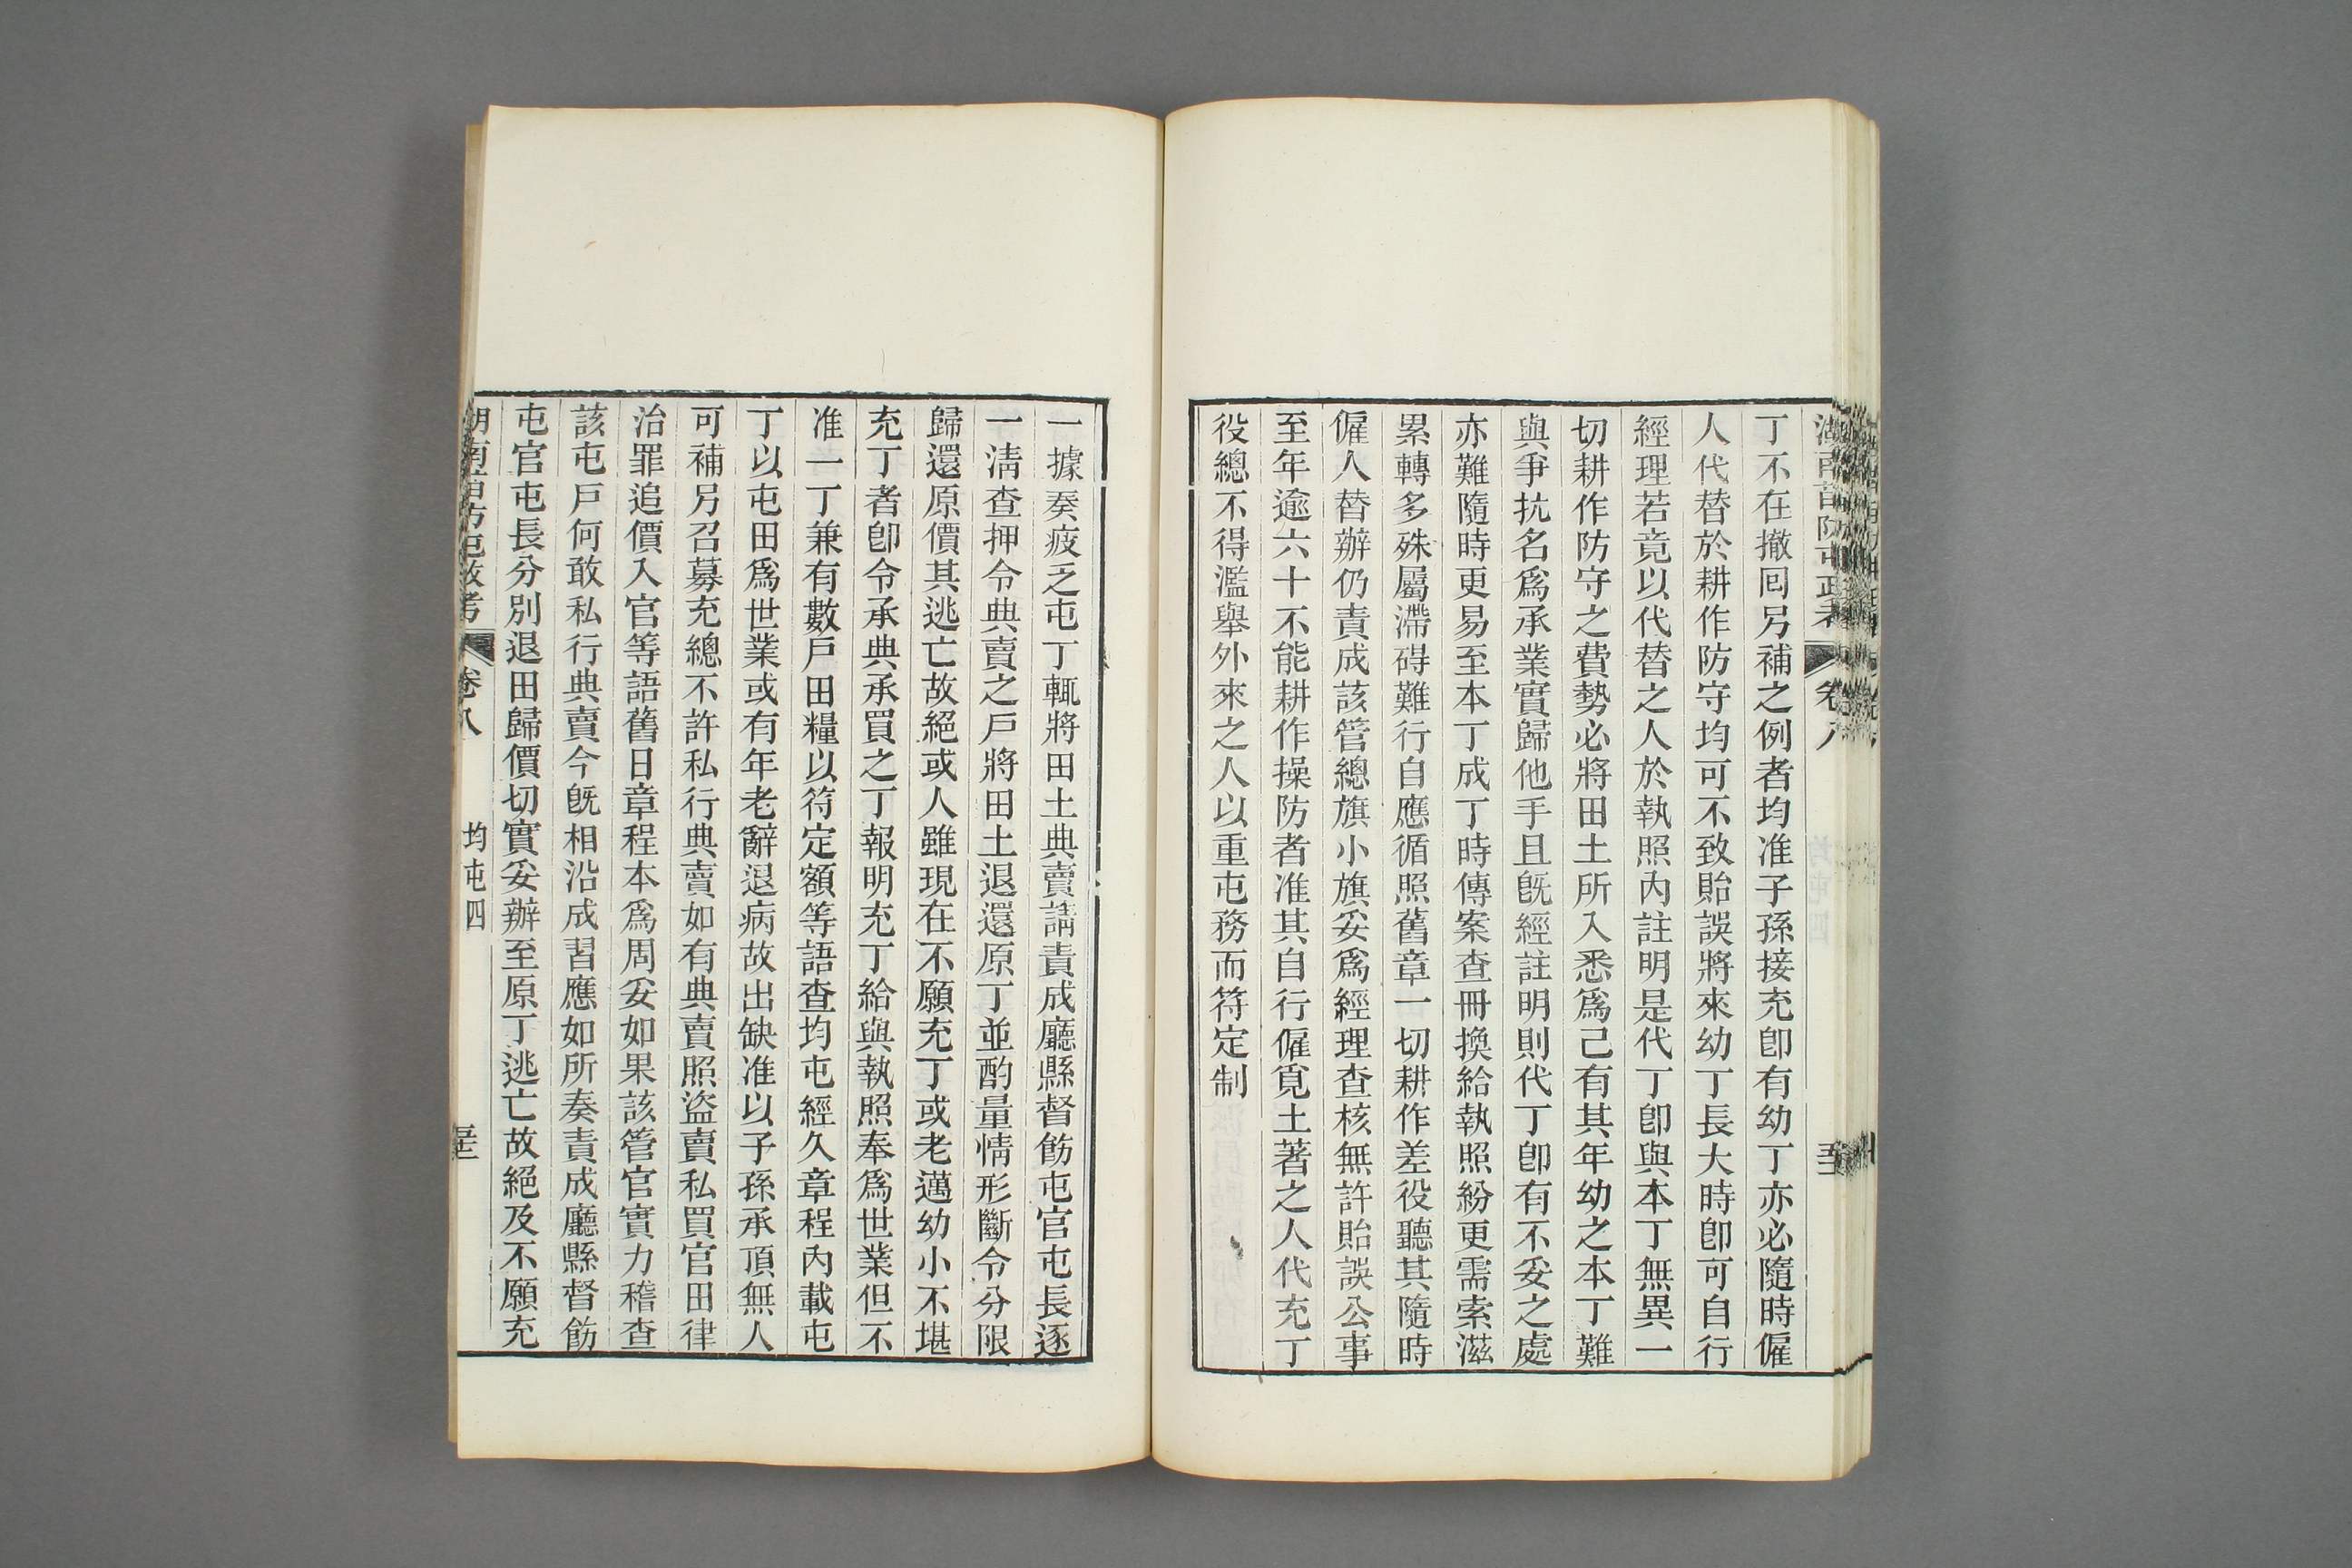 丁不在撤回另補之例者均准子孫接充卽有幼丁亦必隨時僱
人代替於耕作防守均可不致貽誤將來幼丁長大時卽可自行
經理若竟以代替之人於執照內註明是代丁卽與本丁無異一
切耕作防守之費勢必將田土所入悉爲己有其年幼之本丁難
與爭抗名爲承業實歸他手且旣經註明則代丁卽有不妥之處
亦難隨時更易至本丁成丁時傳案查冊換給執照紛更需索滋
累轉多殊屬滯碍難行自應循照舊章一切耕作差役聽其隨時
僱人替辦仍責成該管總旗小旗妥爲經理查核無許貽誤公事
至年逾六十不能耕作操防者准其自行僱覓土著之人代充丁
役總不得濫舉外來之人以重屯務而符定制
一據奏疲乏屯丁輒將田土典賣請責成廳縣督飭屯官屯長逐
一淸查押令典賣之戶將田土退還原丁並酌量情形斷令分限
歸還原價其逃亡故絕或人雖現在不願充丁或老邁幼小不堪
充丁者卽令承典承買之丁報明充丁給與執照奉爲世業但不
准一丁兼有數戶田糧以符定額等語查均屯經久章程內載屯
丁以屯田爲世業或有年老辭退病故出缺准以子孫承頂無人
可補另召募充總不許私行典賣如有典賣照盜賣私買官田律
治罪追價入官等語舊日章程本爲周妥如果該管官實力稽查
該屯戶何敢私行典賣今旣相沿成習應如所奏責成廳縣督飭
屯官屯長分別退田歸價切實妥辦至原丁逃亡故絕及不願充
卷八
均屯四